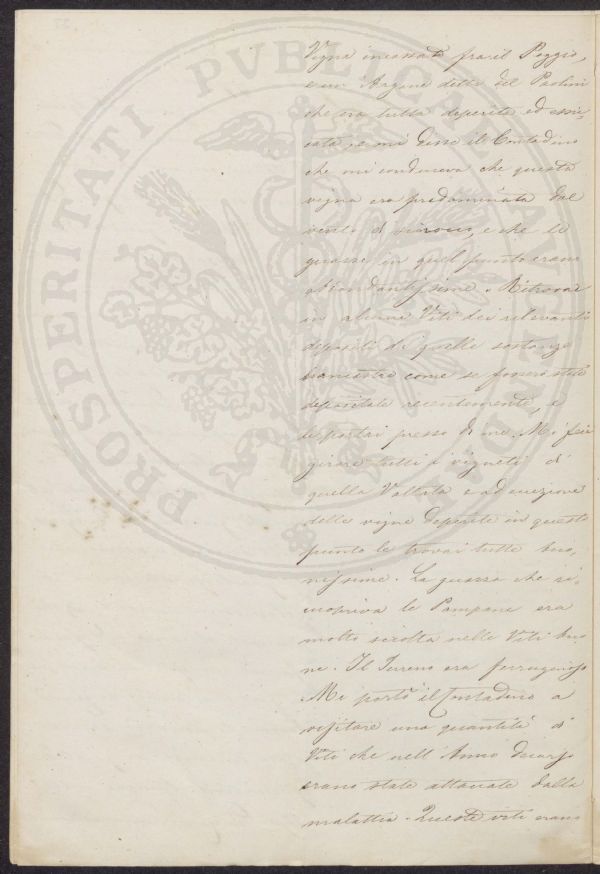 PROSPERITATI PUBLICAE AUGENDAE
Vigna incassata fra il Poggio,
e un Argine detto del Paolini
che era tutta deperita ed essi-
cata, e mi disse il Contadino
che mi conduceva che questa
vigna era predominata dal
vento di scirocco, e che le
guasse in quel punto erano
abbondantissime. Ritrovai
in alcune Viti dei rilevanti
depositi di quelle sostanze
biancastre come se fossero state
depositate recentemente, e
le portai presso di me. Mi feci
girare tutti i vigneti di
quella Vallata e ad eccezione
delle vigne deperite in questo
punto le trovai tutte buo-
nissime. La guassa che ri-
copriva le Pampane era
molto sciolta nelle Viti buo
ne. Il Terreno era ferruginoso
Mi portò il Contadino a
visitare una quantità di
Viti che nell'Anno decorso
erano state attaccate dalla
malattia. Queste viti erano